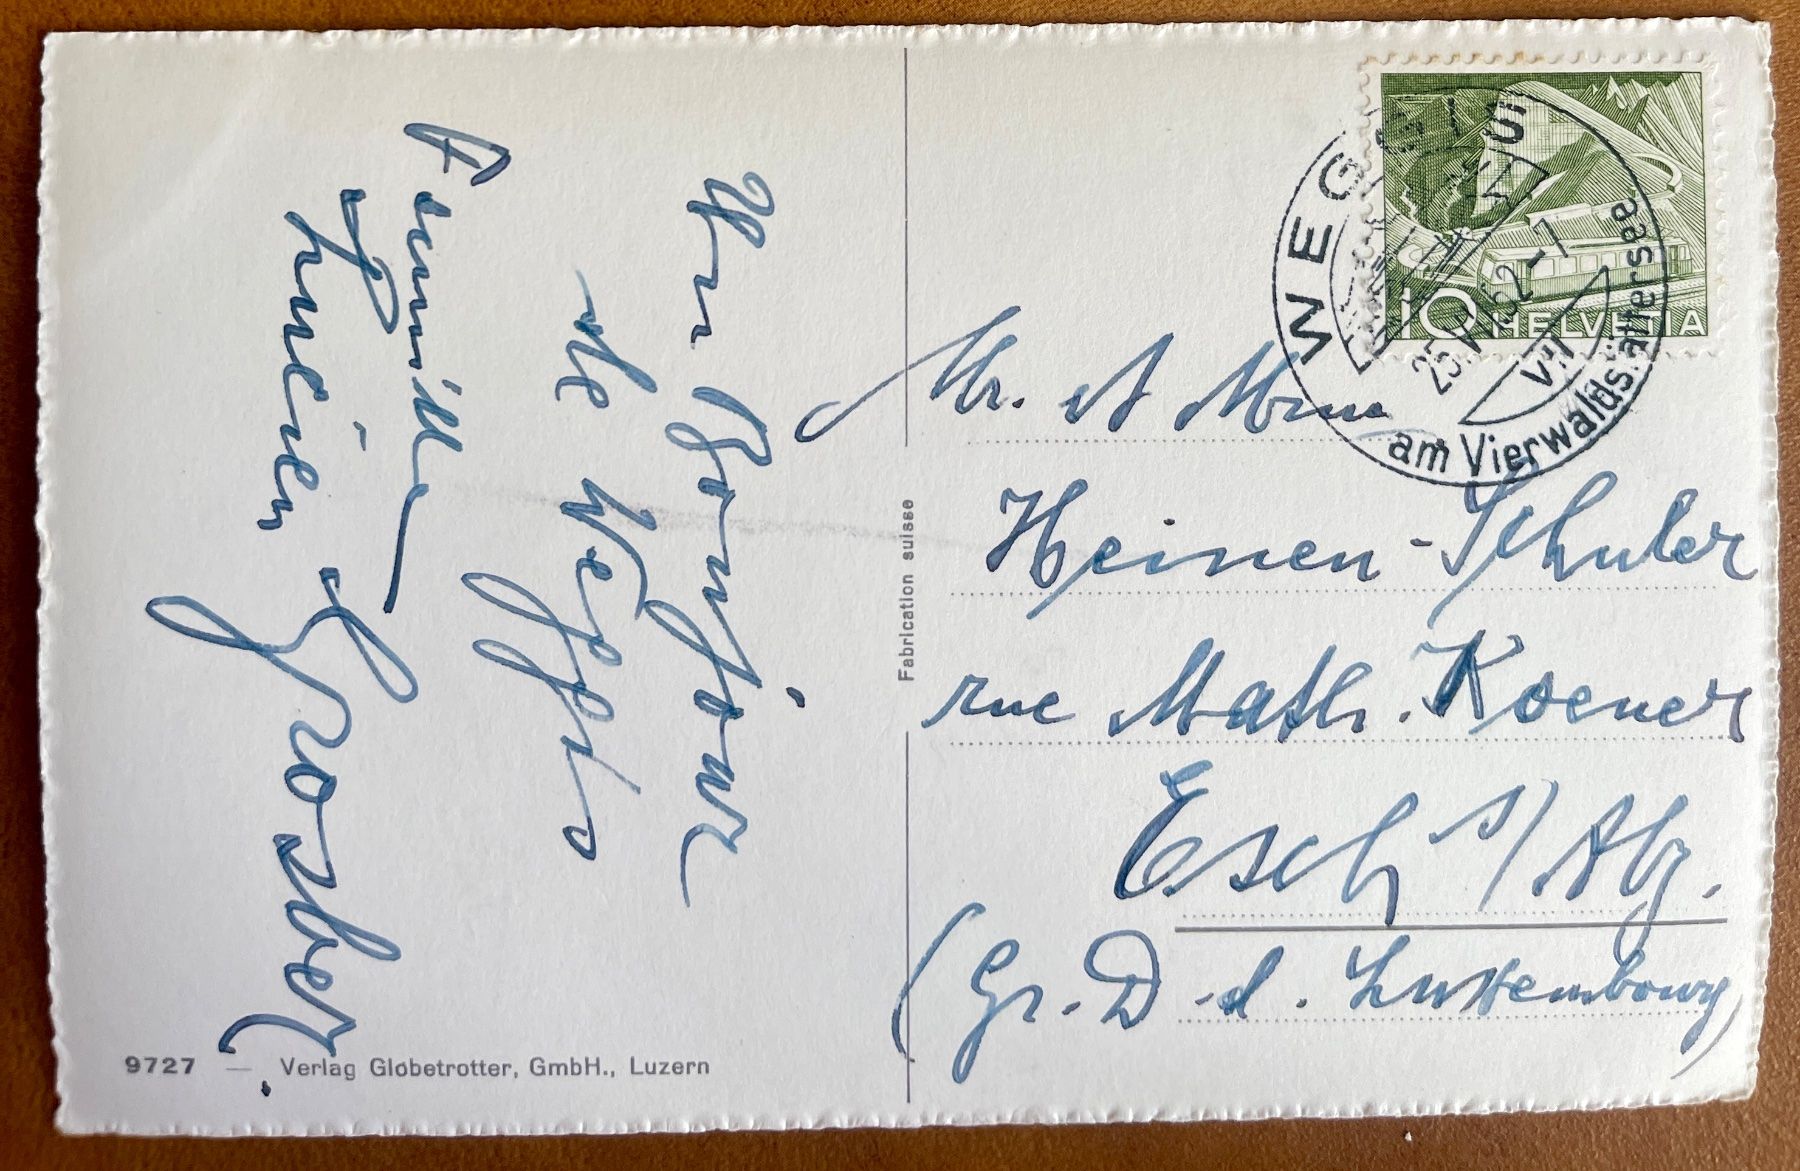 Un Bonjour
de Weggis
Famille
Lucien Grosber
9727 — Verlag Globetrotter, GmbH., Luzern
Fabrication suisse
WEGGIS
25. 52-7
VII
am Vierwalds.ättersee
10 HELVETIA
Mr. et Mme
Heinen-Schuler
rue Math. Koener
Esch s/Alz.
(Gr. D. d. Luxembourg)